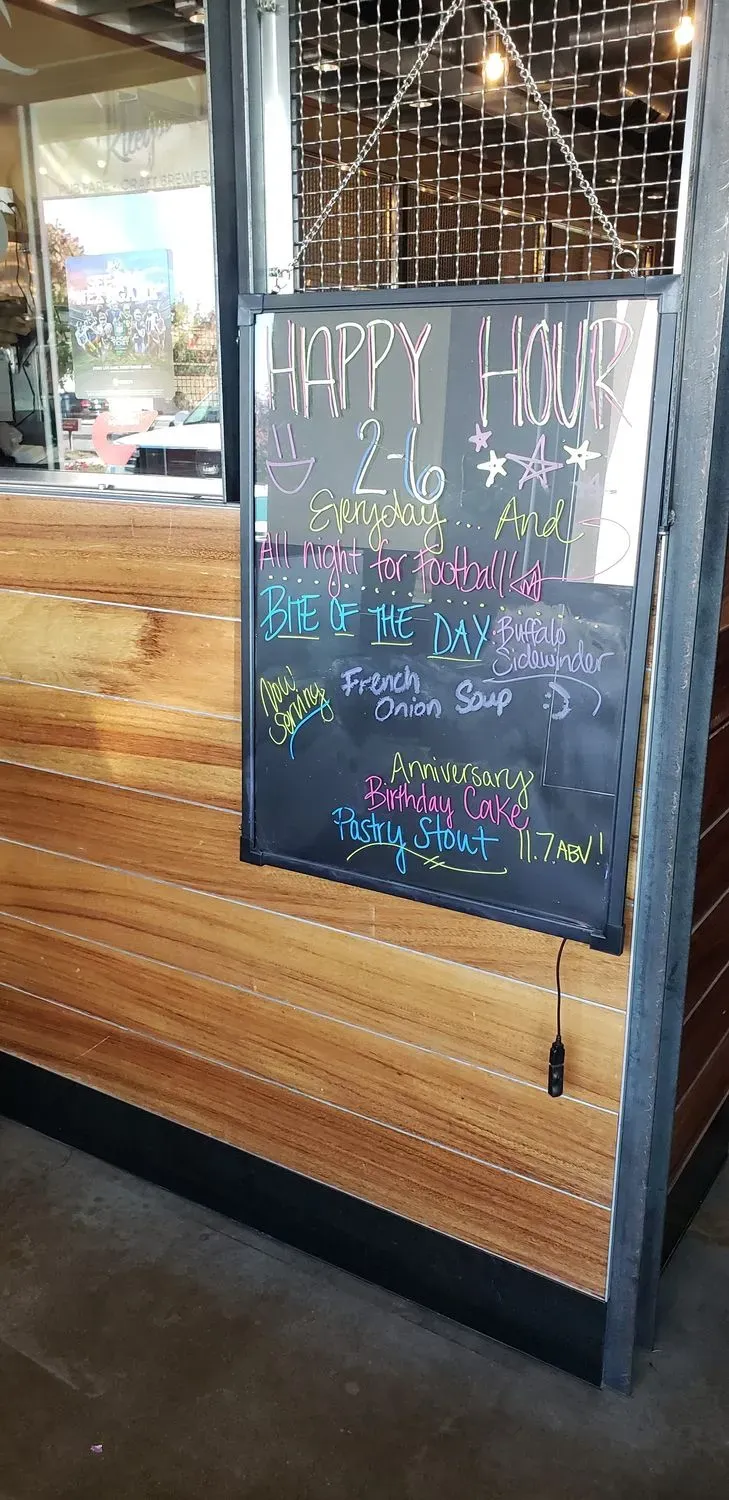 HAPPY HOUR
2-6
Everyday ... And
All night for Football!
BITE OF THE DAY
Buffalo
Sidewinder
Now
Serving
French
Onion Soup
Anniversary
Birthday Cake
Pastry Stout 11.7 ABV!